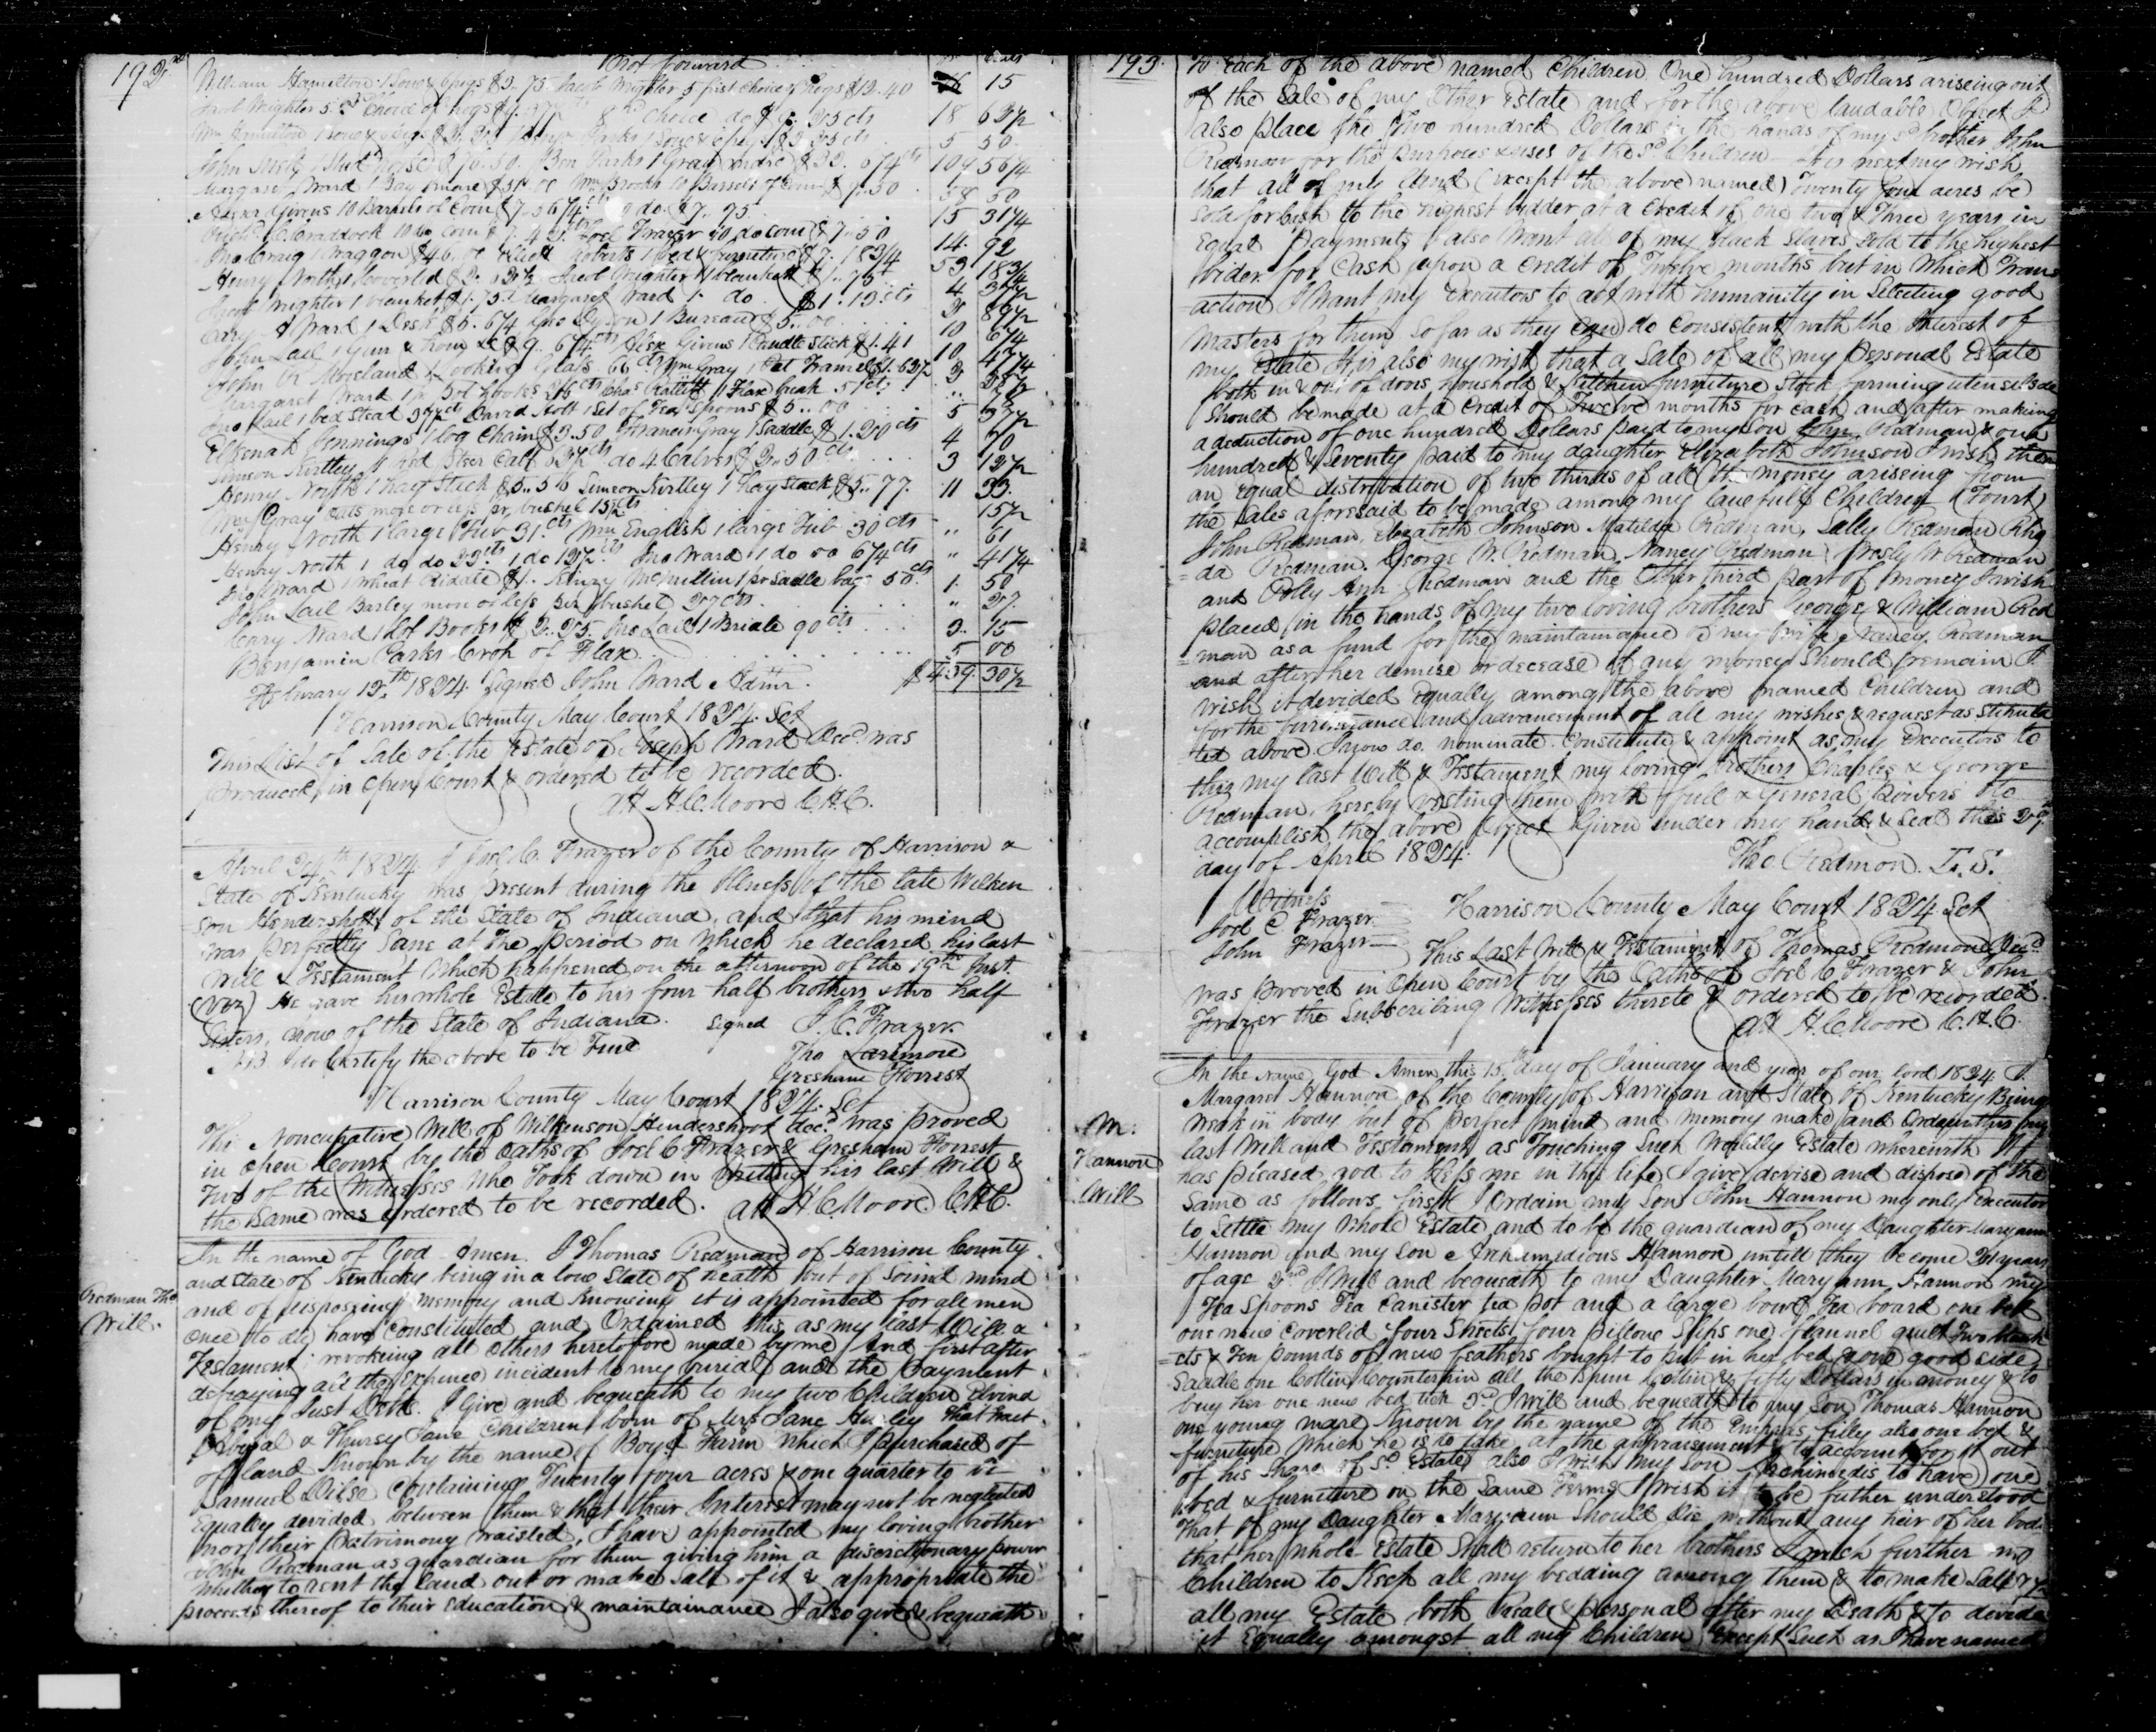 192
Brot forward
William Hamilton 1 Sow & 6 pigs $3.75 Jacob Wrighter 5 first choice hogs $12.40 15
Jacob Wrighter 5 2d choice of hogs $9.37½ 8 3d choice do $9.25 cts 18 62½
5 50
John 1 horse $70.50. Ben Parks 1 Gray mare $39.06¼ cts 109 56¼
Margaret Ward 1 Bay mare $51.00 Wm Brooks 10 Barrels of Corn $7.50 58 50
Alexr Givens 10 Barrels of Corn $7.56¼ cts 9 do $7.75 15 31¼
Craddock 10 do Corn Joel Frazer 10 do corn $7.50 14. 92
Jno Craig 1 Waggon $46.00 Roberts 1 bed & furniture $7.18¾ 53 18¾
Henry North 1 Coverlid Jacob Wrighter 1 blanket $1.75 4 37½
Jacob Wrighter 1 blanket Margaret Ward 1 do $1.12 cts 2 87½
Cary A Ward 1 Desk $5.6¼ Jno Dyson 1 Bureau $5.00 10 6¼
John Lail 1 Gun & horn &c $9.6¼ cts Alexr Givens 1 Candle Stick $1.41 10 47¼
John R Morland 1 Looking Glass 66 cts Wm Gray 1 Cut Framel $1.62½ 2 28½
Margaret Ward 1 pr Pot hooks 26 cts Chas Bartlett 1 Flax break 51 cts
Jno Lail 1 bed Stead 37½ cts David Nott 1 Set of Tea Spoons $5..00 5 37½
Elkenah Jennings 1 log Chain $3.50 Francis Gray 1 Saddle $1.20 cts 4 70
Simeon Kirtley 1 Red Steer Calf 62½ cts do 4 Calves $2..50 cts 3 12½
Henry North 1 hay Stack $5..56 Simeon Kirtley 1 hay Stack $5..77. 11 33.
Gray oats more or less pr. bushel 15½ cts 15½
Henry North 1 large Tub 31 cts Wm English 1 large Tub 30 cts " 61
Henry North 1 do do 22 cts 1 do 12½ cts Jno Ward 1 do do 6¼ cts " 41¼
Jno Ward 1 Wheat Riddle $1.. Henry McMullin 1 pr Sadle bags 50 cts 1. 50
John Lail Barley more or less per bushel 27 cts " 27.
Cary Ward 1 Lot Books $2..25. Jno Lail 1 Bridle 90 cts 3.. 15
Benjamin Parks Crop of Flax 5 00
February 12th 1824. Signed John Ward Admr. $439. 30½
Harrison County May Court 1824. Sct
This List of Sale of the Estate of Joseph Ward Decd. was
produced in Open Court & ordered to be recorded.
Att H. C. Moore C.H.C.
April 24th 1824. I Joel C. Frazer of the County of Harrison &
State of Kentucky was present during the illness of the late Wilken
son Hendershott of the State of Indiana, and that his mind
was perfectly Sane at the period on which he declared his last
Will & Testament Which happened on the afternoon of the 19th Inst.
(Viz) He gave his whole Estate to his four half brothers & two half
Sisters, now of the State of Indiana. Signed J. C. Frazer.
NB I do Certify the above to be True Tho Larimore
Gresham Forrest
Harrison County May Court 1824. Sct
This Noncupative Will of Wilkenson Hendershott decd. was proved
in Open Court by the Oaths of Joel C Frazer & Gresham Forrest
Two of the Witnesses who Took down in writing his last Will &
the Same was ordered to be recorded. Att H C Moore C.H.C.
Redman Tho
Will.
In the name of God Amen. I Thomas Redman of Harrison County
and State of Kentucky being in a low State of health but of Sound mind
and of disposeing memory and knowing it is appointed for all men
once to die, have Constituted and Ordained this as my last Will &
Testament; revokeing all others heretofore made by me And first after
defraying all the expenses incident to my burial and the payment
of my Just Debts. I Give and bequeath to my two Children Elvina
Abigal & Thursy Jane Children born of Mrs Jane Hurley that tract
of land known by the name of Boyd Farm which I purchased of
Samuel Dilse Containing Twenty four acres & one quarter to be
Equally devided between them & that their Interest may not be neglected
nor their Patrimony waisted, I have appointed my loving brother
John Redman as guardian for them giving him a discretionary power
whether to rent the land out or make Sale of it & appropriate the
proceeds thereof to their Education & maintainance I also give & bequeath
193.
to Each of the above named Children One hundred Dollars ariseing out
of the Sale of my Other Estate and for the above laudable Object I
also place the Two hundred Dollars in the hands of my sd brother John
Redman for the purposes & uses of the sd. Children. It is next my wish
that all of my land (except the above named) Twenty four acres be
Sold for Cash to the highest bidder at a Credit of one two & Three years in
Equal payments I also Want all of my black Slaves Sold to the highest
bider for Cash upon a Credit of Twelve months but in Which Trans
=action I Want my Executors to act with humanity in Selecting good
masters for them So far as they can do Consistent with the Interest of
my Estate It is also my wish that a Sale of all my Personal Estate
both in & out of dores houshold & Kitchen furniture Stock farming utensils &c
Should be made at a Credit of Twelve months for Cash and after makeing
a deduction of one hundred Dollars paid to my son John Redman & one
hundred & Seventy paid to my daughter Elizabeth Johnson I wish then
an equal distribution of two thirds of all the money arissing from
the Sales aforesaid to be made among my lawfull Children (Towit)
John Redman, Elizabeth Johnson Matilda Redman, Sally Redman Rho
=da Redman. George W. Redman. Nancy Redman Presly W. Redman
and Polly Ann Redman and the Other third part of money I wish
placed in the hands of my two loving brothers George & William Red
=man as a fund for the maintainance of my wife Nancy. Redman
and after her demise or decease if any money should remain I
wish it devided Equally among the above named Children and
for the furtherance and advancement of all my wishes & request as Stipula
ted above I now do nominate. Constitute & appoint as my Executors to
this my last Will & Testament my loving brothers Charles & George
Redman, hereby vesting them with full & General Powers to
accomplish the above Object Given under my hand & Seal this 27th
day of April 1824. Tho Redmon. L.S.
Witness
Joel C Frazer
John Frazer
Harrison County May Court 1824 Sct
This Last Will & Testament of Thomas Redmon Decd.
was proved in Open Court by the Oaths of Joel C Frazer & John
Frazer the Subscribing Witnesses thereto & ordered to be recorded.
Att H. C. Moore C.H.C.
M.
Hannon
Will
In the Name God Amen, this 15th day of January and year of our lord 1824 I.
Margaret Hannon of the County of Harrison and State of Kentucky Being
Weak in body but of perfect mind and memory make and Ordain this my
last Will and Testament as Touching Such Worldly Estate wherewith It
has pleased god to bless me in this life I give devise and dispose of the
Same as follows first I Ordain my Son John Hannon my only Executor
to Settle my Whole Estate and to be the guardian of my Daughter Mary ann
Hannon and my Son Archamedious Hannon untill they become 21 years
of age 2nd I Will and bequeath to my Daughter Mary ann Hannon my
Tea Spoons Tea Canister tea Pot and a large bowl Tea board one bed
one new Coverlid four Sheets four pillow Slips one flannel quilt Two blank
=ets & Ten pounds of new feathers bought to put in her bed & one good side
Saddle one Cotten Counterpin all the Spun Cotten & fifty Dollars in money & to
buy her one new bed tick 3d. I will and bequeath to my Son Thomas Hannon
one young mare known by the name of the Empress filly also one bed &
furniture which he is to take at the appraisement & to account for it out
of his Share of sd. Estate also I wish my Son Archimedis to have one
bed & furniture on the Same Terms I wish it to be futher understood
That if my Daughter Mary ann Should Die without any heir of her body
that her whole Estate Shall return to her brothers I wish further my
Children to Keep all my bedding among them & to make Sale of
all my Estate both Real & personal after my Death & to devide
it Equally amongst all my Children, Except Such as I have named